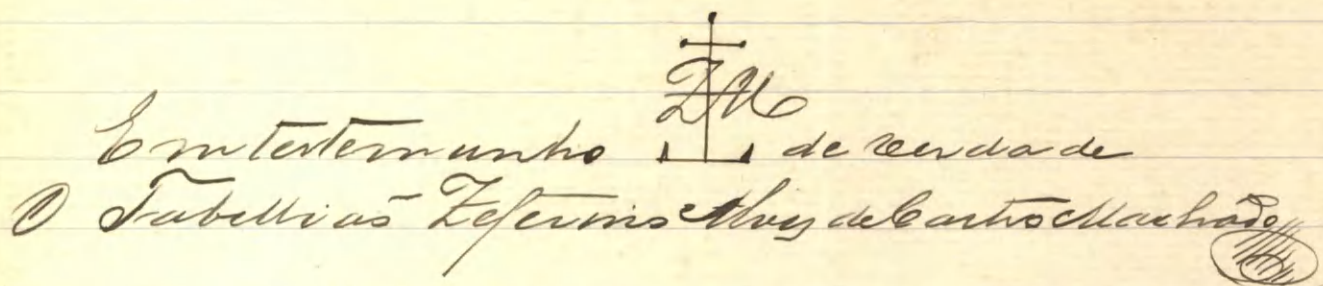 ZM
Em testemunho de verdade
O Tabellião Zeferino Alves de Castro Machado